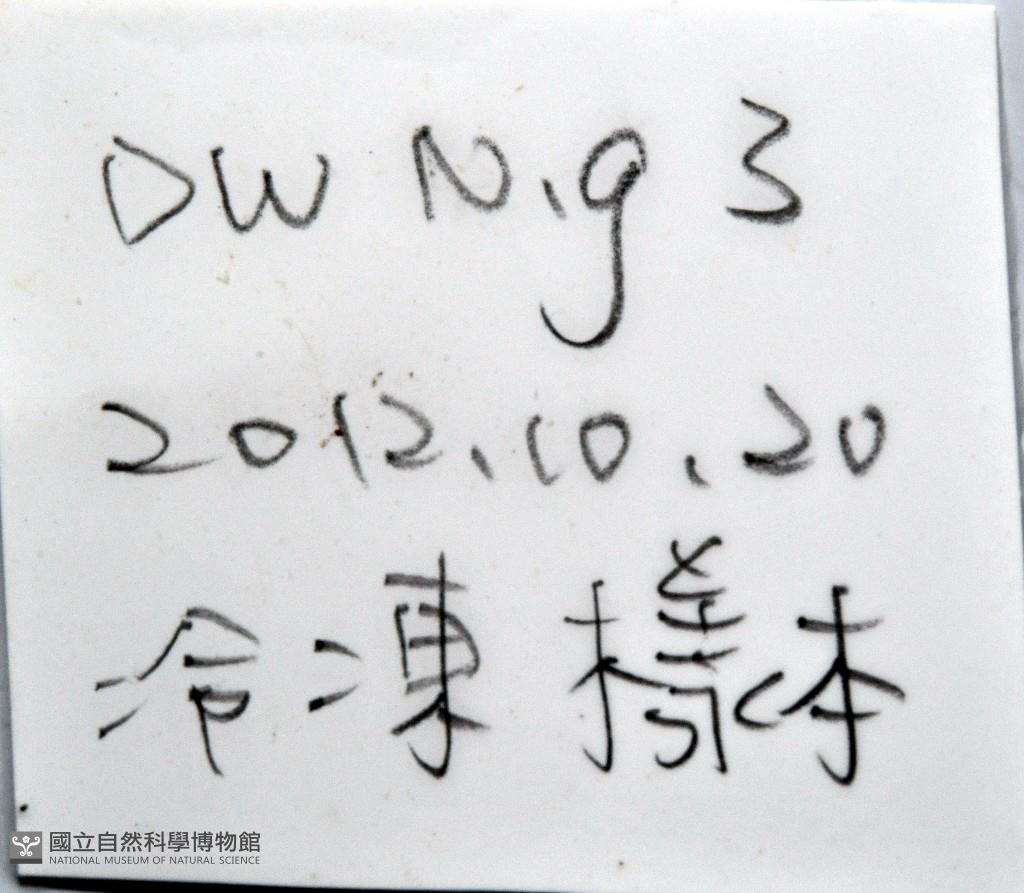 DW N.g 3
2012.10.20
冷凍樣本
國立自然科學博物館
NATIONAL MUSEUM OF NATURAL SCIENCE